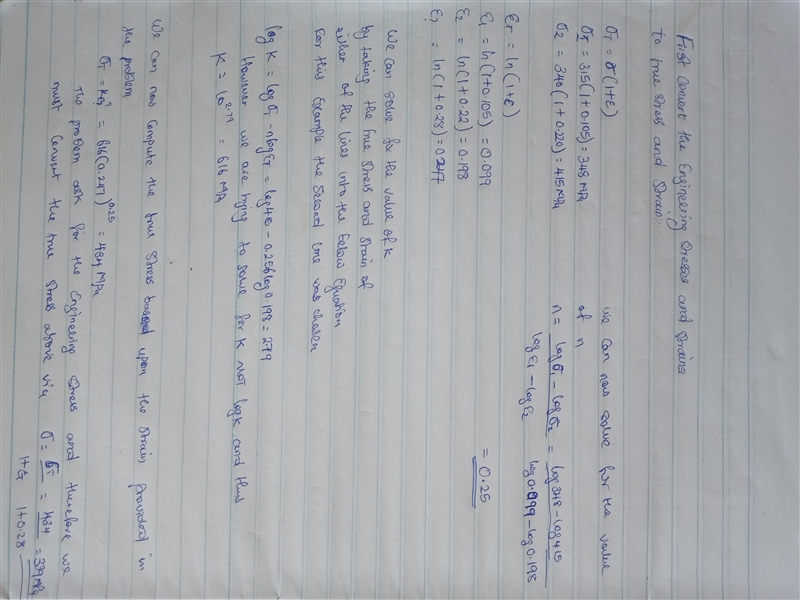 First Convert the Engineering Stresses and Strains
to true stress and Strain:
σT = σ(1+ε)
σT = 315(1+0.105) = 348 MPa
σ2 = 340(1+0.220) = 415 MPa
εT = ln(1+ε)
ε1 = ln(1+0.105) = 0.099
ε2 = ln(1+0.22) = 0.198
ε3 = ln(1+0.28) = 0.247
we can now solve for the value
of n
n = log σ1 - log σ2 / log ε1 - log ε2 = log 348 - log 415 / log 0.099 - log 0.198
= 0.25
We can solve for the value of K
by taking the true stress and strain of
either of the lines into the below equation
For this example the second line was chosen
log K = log σT - n log εT = log 415 - 0.256 log 0.198 = 2.79
However we are trying to solve for K not log K and thus
K = 10^2.79 = 616 MPa
We can now compute the true stress based upon the strain provided in
the problem
σT = Kε3^n = 616(0.247)^0.25 = 434 MPa
The problem ask for the Engineering stress and therefore we
must convert the true stress above via σ = σT / 1+ε = 434 / 1+0.28 = 339 MPa